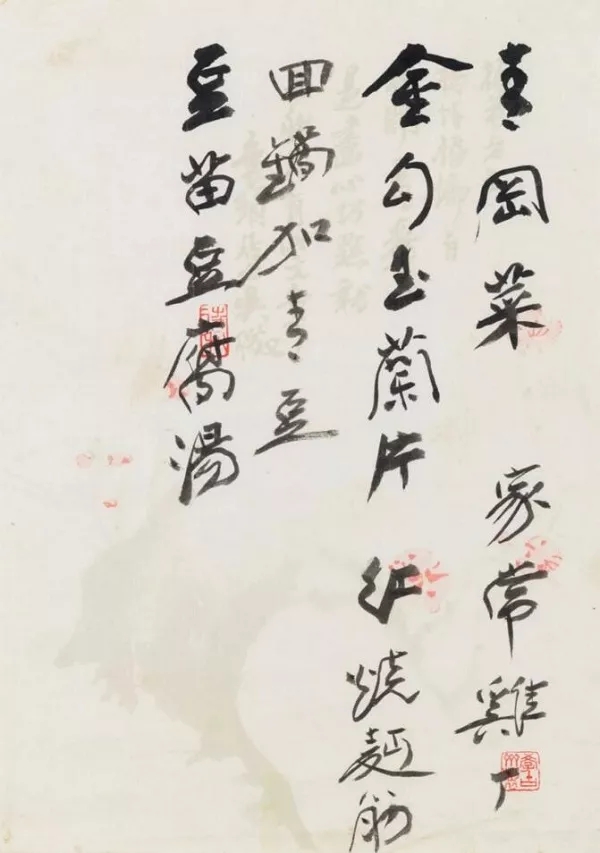 青岡菜 家常雞丁
金勾玉蘭片 紅燒麪筋
回鍋加青豆
豆苗豆腐湯